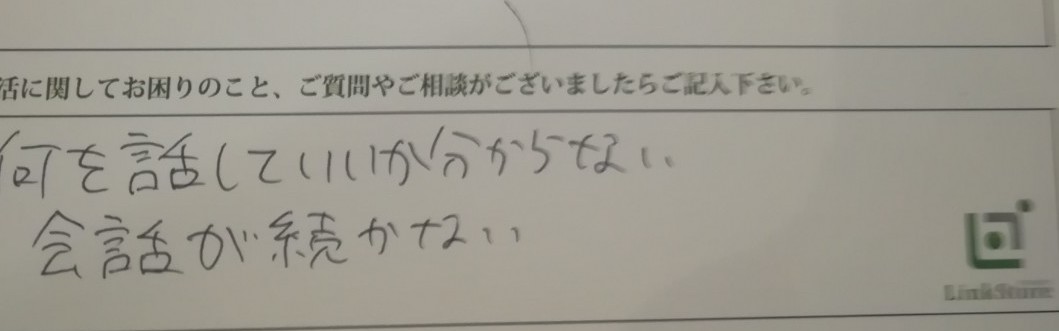 活に関してお困りのこと、ご質問やご相談がございましたらご記入下さい。
何を話していいか分からない
会話が続かない